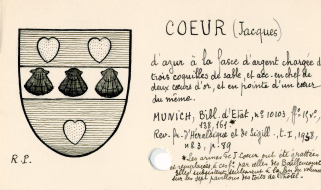 COEUR (Jacques)
d'azur à la fasce d'argent chargée de
trois coquilles de sable, et acc. en chef de
deux cœurs d'or, et en pointe d'un cœur
du même.
MUNICH, Bibl. d'Etat, nº 10103, ff. 1,
138, 161
Rev. fr. d'Héraldique et de Sigill., t. I, 1938,
nº 3, p. 99
*Les armes de J. Coeur ont été grattées
et remplacées par celles des
sur les sept
R.L.